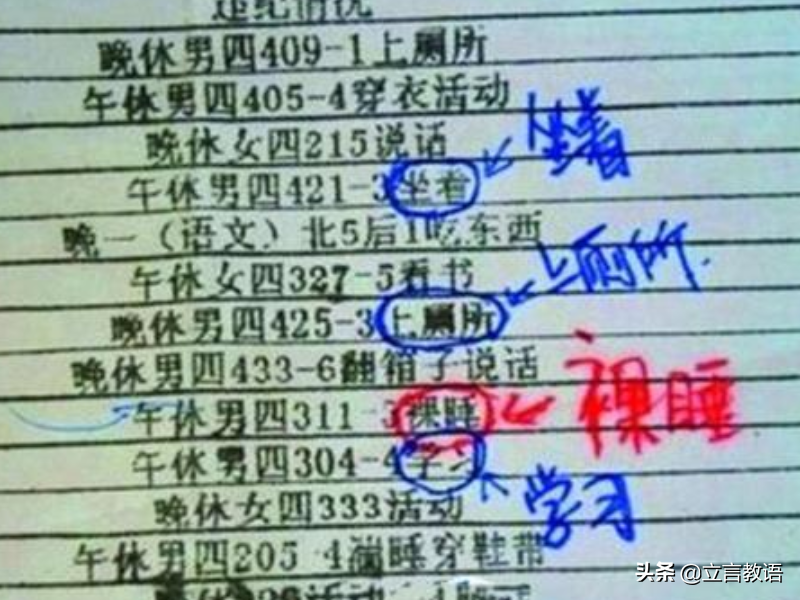 违纪情况
晚休男四409-1上厕所
午休男四405-4穿衣活动
晚休女四215说话
坐着
午休男四421-3坐着
晚一（语文）北5后1吃东西
午休女四327-5看书
上厕所
晚休男四425-3上厕所
晚休男四433-6翻箱子说话
午休男四311-3裸睡
裸睡
午休男四304-4学习
晚休女四333活动
学习
午休男四205 4 睡穿鞋带
头条 @立言教语